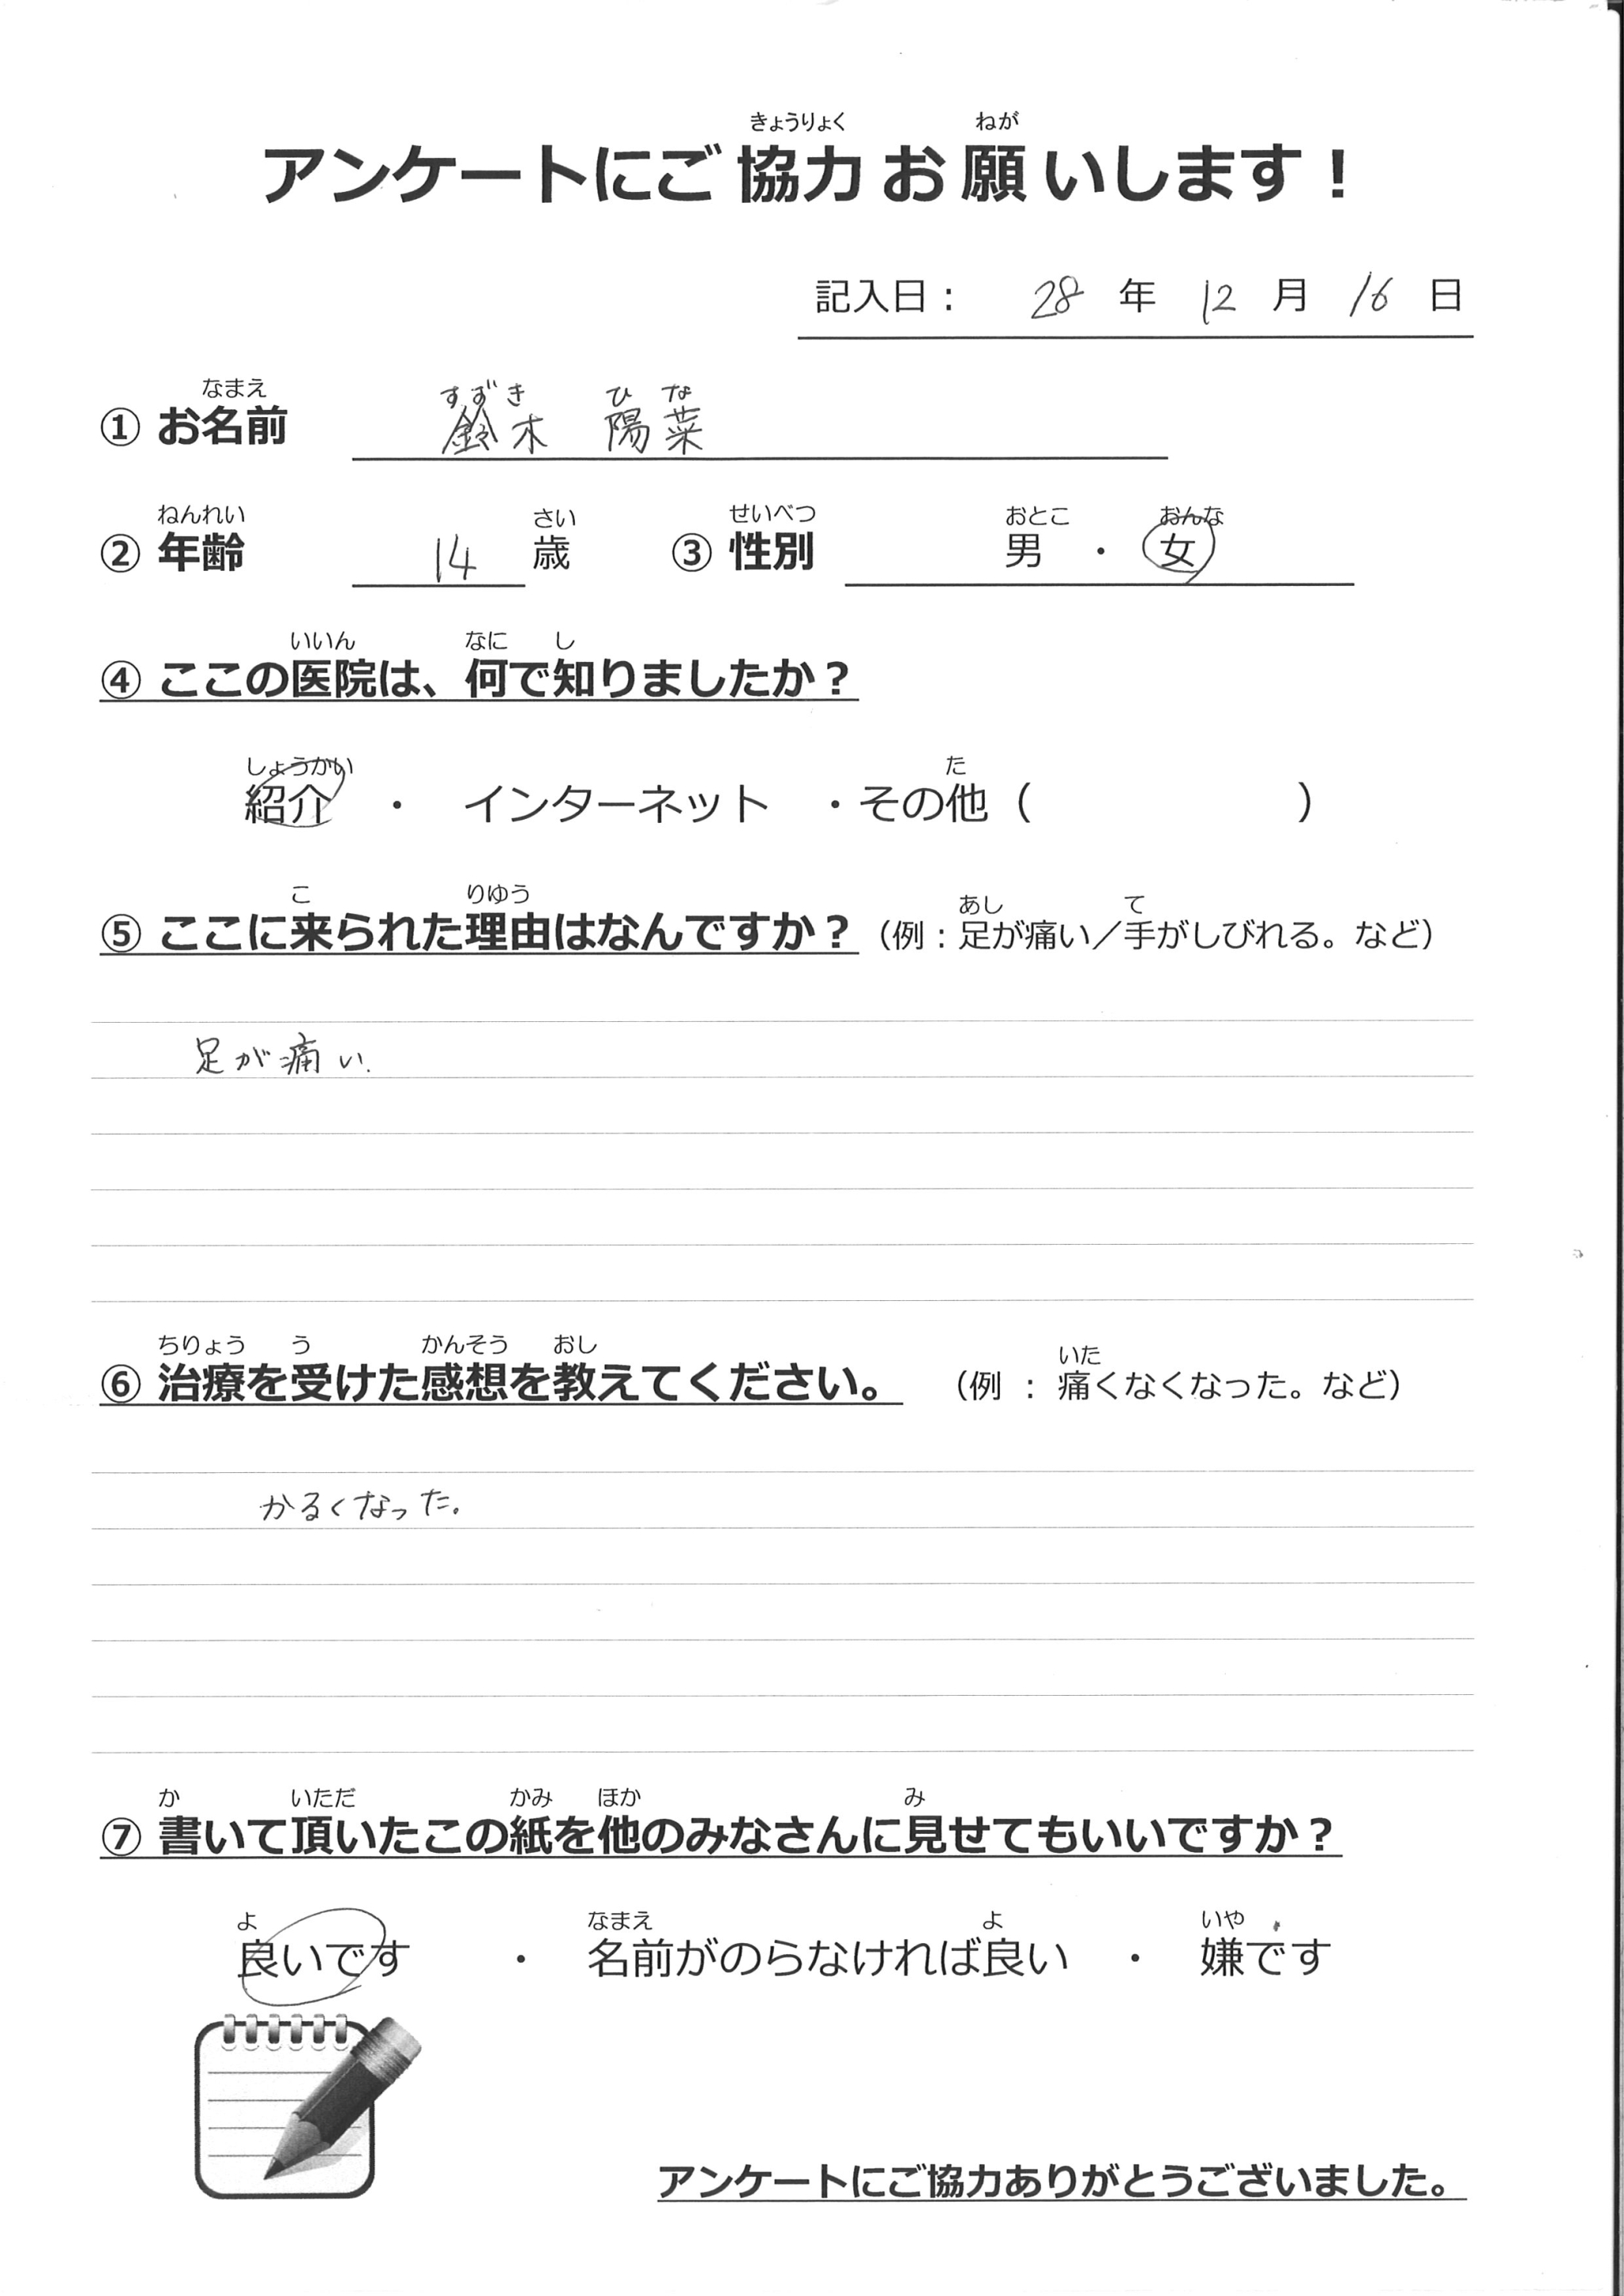 きょうりょく ねが
アンケートにご協力お願いします！
記入日： 28 年 12 月 16 日
なまえ すずき ひな
① お名前 鈴木 陽菜
ねんれい さい せいべつ おとこ おんな
② 年齢 14 歳 ③ 性別 男 ・ 女
いいん なに し
④ ここの医院は、何で知りましたか？
しょうかい た
紹介 ・ インターネット ・その他（ ）
こ りゆう あし て
⑤ ここに来られた理由はなんですか？（例：足が痛い／手がしびれる。など）
足が痛い.
ちりょう う かんそう おし いた
⑥ 治療を受けた感想を教えてください。 （例 ： 痛くなくなった。など）
かるくなった。
か いただ かみ ほか み
⑦ 書いて頂いたこの紙を他のみなさんに見せてもいいですか？
よ なまえ よ いや
良いです ・ 名前がのらなければ良い ・ 嫌です
アンケートにご協力ありがとうございました。